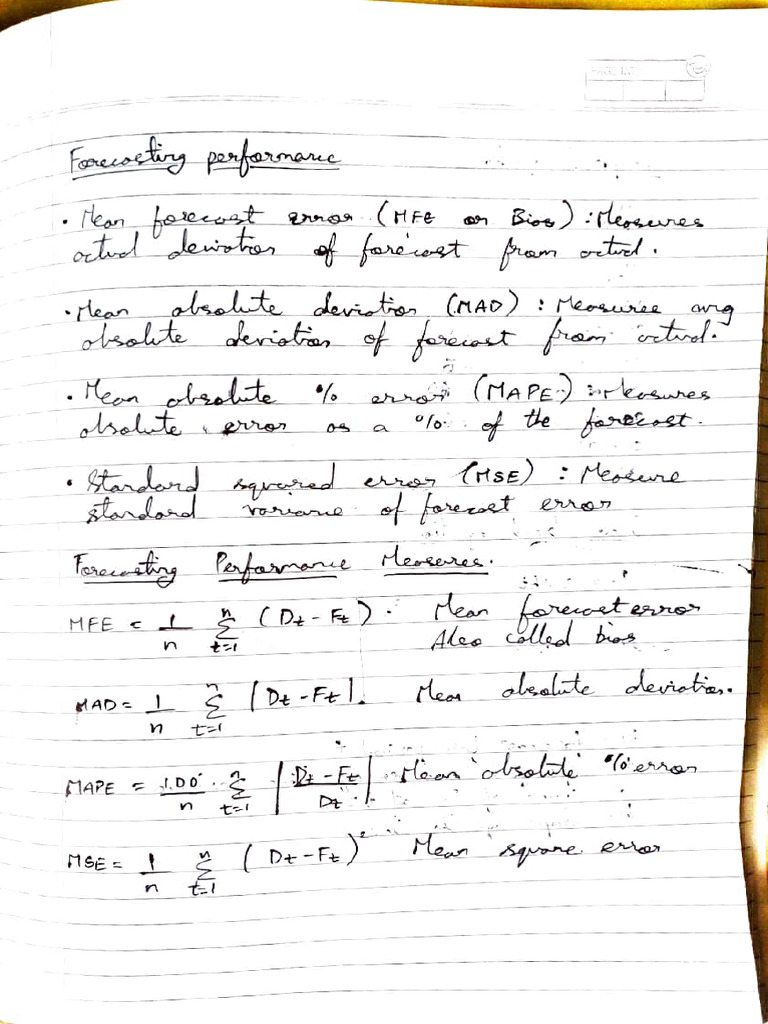 Forecasting performance
• Mean forecast error (MFE or Bias) : Measures
actual deviation of forecast from actual.
• Mean absolute deviation (MAD) : Measures avg
absolute deviation of forecast from actual.
• Mean absolute % error (MAPE) : Measures
absolute error as a % of the forecast.
• Standard squared error (MSE) : Measure
standard variance of forecast error
Forecasting Performance Measures.
MFE = 1/n n∑t=1 (Dt - Ft) . Mean forecast error
Also called bias
MAD = 1/n n∑t=1 |Dt - Ft|. Mean absolute deviation.
MAPE = 100/n n∑t=1 |Dt - Ft / Dt| Mean absolute % error
MSE = 1/n n∑t=1 (Dt - Ft)² Mean square error